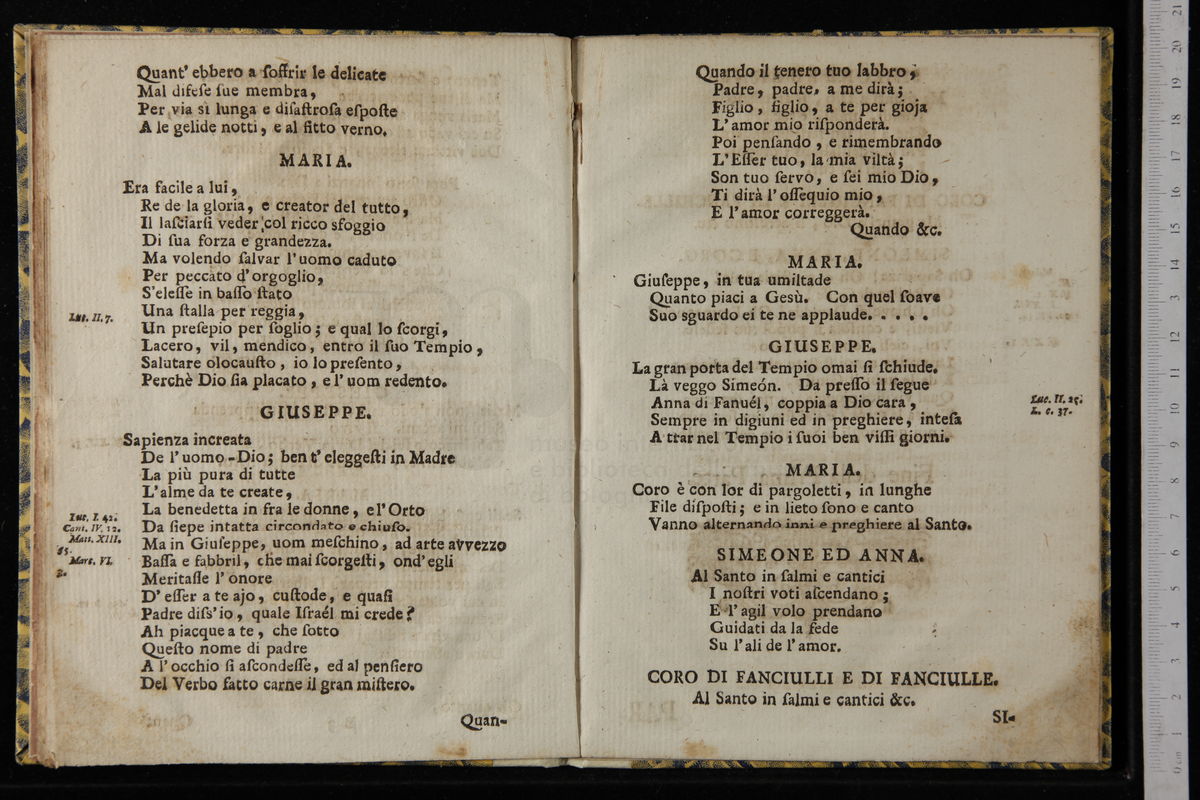 Quant' ebbero a ſoffrir le delicate
Mal difeſe ſue membra,
Per via sì lunga e diſaſtroſa eſpoſte
A le gelide notti, e al fitto verno.
MARIA.
Era facile a lui,
Re de la gloria, e creator del tutto,
Il laſciarſi veder col ricco sfoggio
Di ſua forza e grandezza.
Ma volendo ſalvar l'uomo caduto
Per peccàto d'orgoglio,
S'eleſſe in baſſo ſtato
Una ſtalla per reggia,
Luc. II. 7.
Un preſepio per ſoglio; e qual lo ſcorgi,
Lacero, vil, mendico, entro il ſuo Tempio,
Salutare olocauſto, io lo preſento,
Perchè Dio ſia placato, e l'uom redento.
GIUSEPPE.
Sapienza increata
De l'uomo-Dio; ben t'eleggeſti in Madre
La più pura di tutte
L'alme da te create,
La benedetta in fra le donne, e l'Orto
Luc. I. 42.
Cant. IV. 12.
Da ſiepe intatta circondato e chiuſo.
Matt. XIII.
55.
Ma in Giuſeppe, uom meſchino, ad arte avvezzo
Marc. VI.
3.
Baſſa e fabbril, che mai ſcorgeſti, ond'egli
Meritaſſe l'onore
D'eſſer a te ajo, cuſtode, e quaſi
Padre diſs'io, quale Iſraél mi crede?
Ah piacque a te, che ſotto
Queſto nome di padre
A l'occhio ſi aſcondeſſe, ed al penſiero
Del Verbo fatto carne il gran miſtero.
Quan-
Quando il tenero tuo labbro,
Padre, padre, a me dirà;
Figlio, figlio, a te per gioja
L'amor mio riſponderà.
Poi penſando, e rimembrando
L'Eſſer tuo, la mia viltà;
Son tuo ſervo, e ſei mio Dio,
Ti dirà l'oſſequio mio,
E l'amor correggerà.
Quando &c.
MARIA.
Giuſeppe, in tua umiltade
Quanto piaci a Gesù. Con quel ſoave
Suo sguardo ei te ne applaude. . . . .
GIUSEPPE.
La gran porta del Tempio omai ſi ſchiude.
Là veggo Simeón. Da preſſo il ſegue
Anna di Fanuél, coppia a Dio cara,
Luc. II. 25.
E. c. 37.
Sempre in digiuni ed in preghiere, inteſa
A trar nel Tempio i ſuoi ben viſſi giorni.
MARIA.
Coro è con lor di pargoletti, in lunghe
File diſpoſti; e in lieto ſono e canto
Vanno alternando inni e preghiere al Santo.
SIMEONE ED ANNA.
Al Santo in ſalmi e cantici
I noſtri voti aſcendano;
E l'agil volo prendano
Guidati da la fede
Su l'ali de l'amor.
CORO DI FANCIULLI E DI FANCIULLE.
Al Santo in ſalmi e cantici &c.
SI-